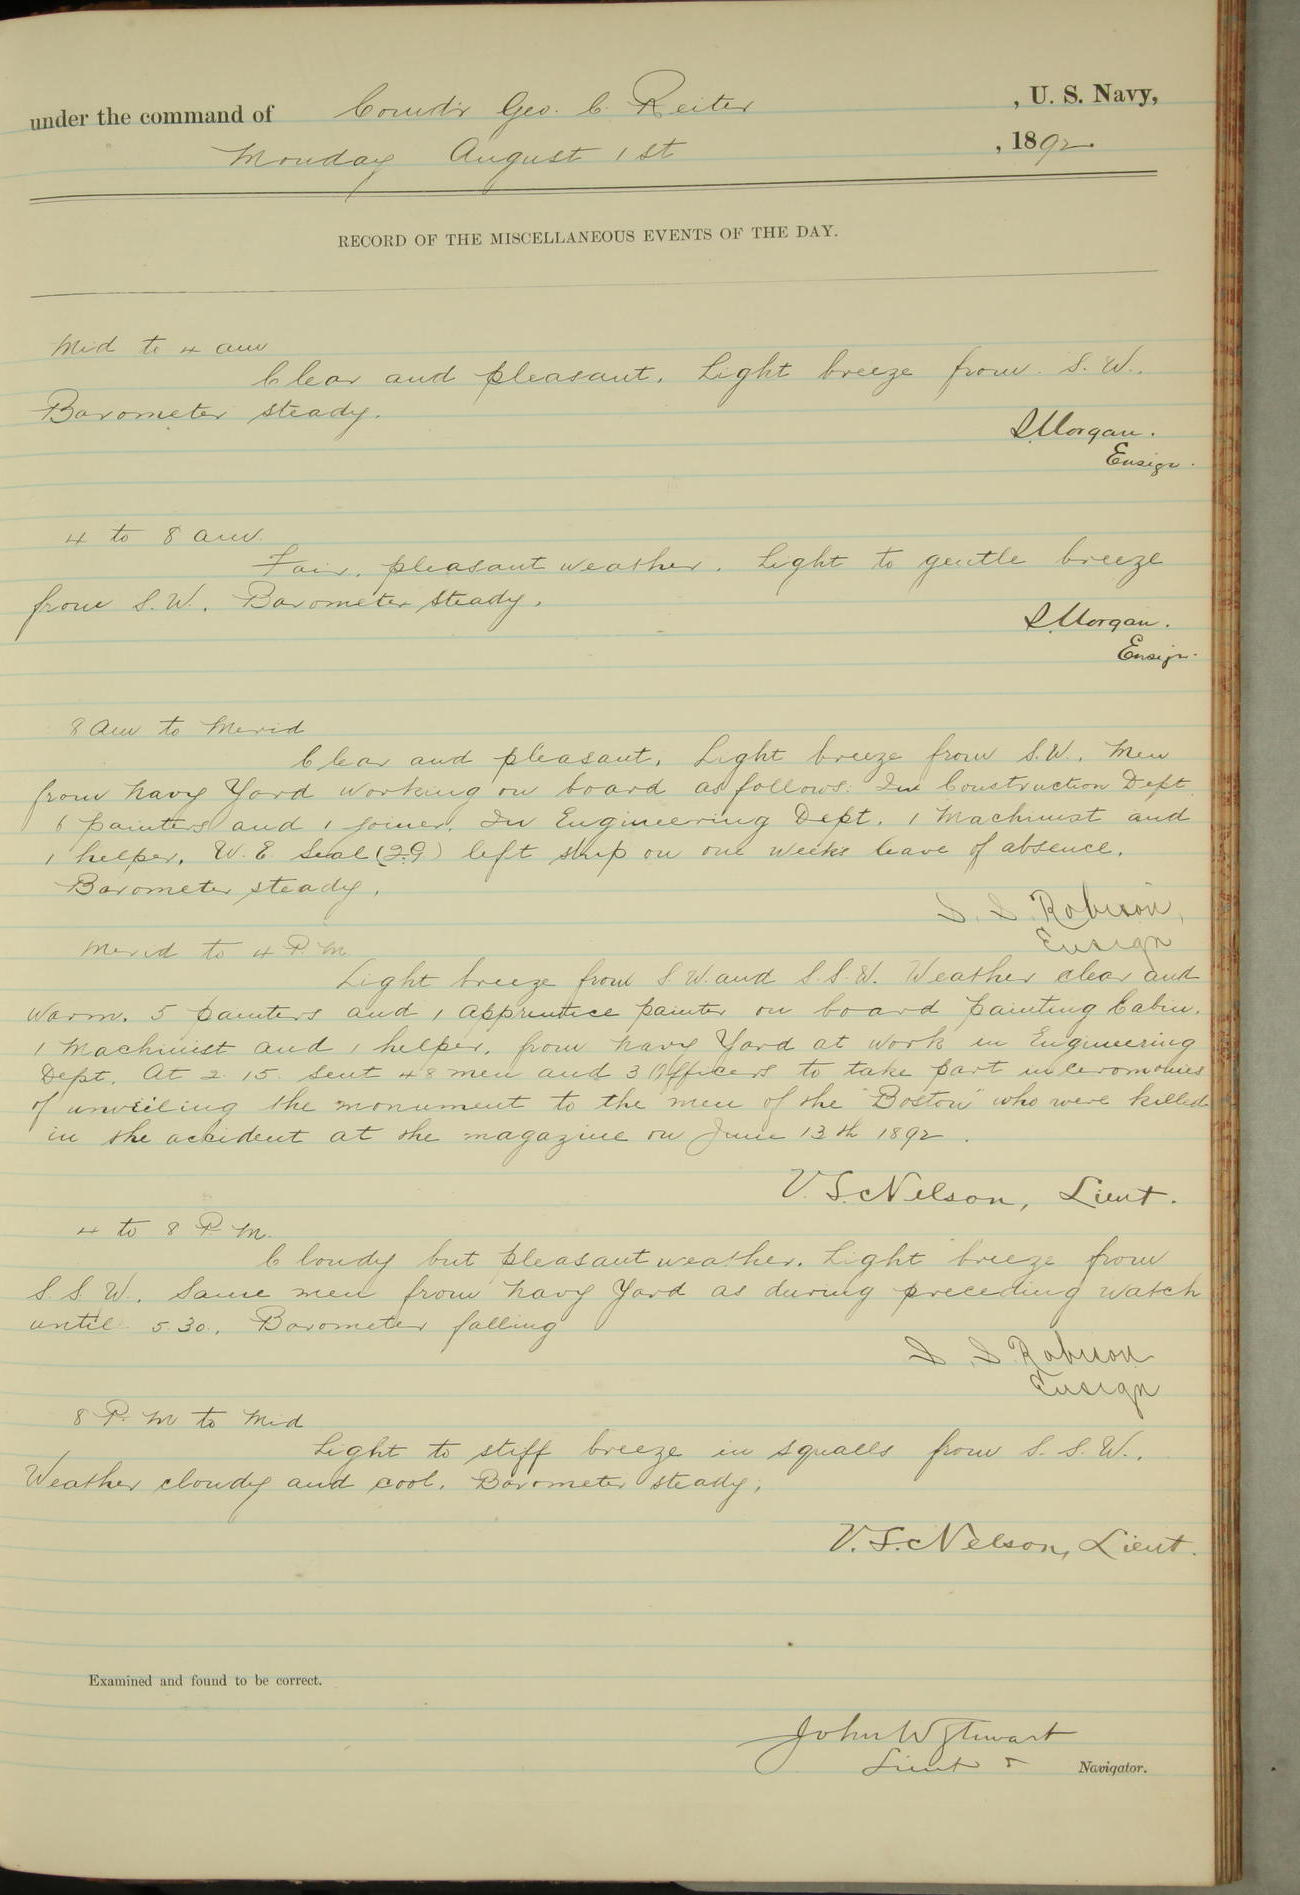 under the command of Comdr Geo. C. Reiter , U. S. Navy,
Monday August 1st , 1892.
RECORD OF THE MISCELLANEOUS EVENTS OF THE DAY.
Mid to 4 am
Clear and pleasant. Light breeze from S. W..
Barometer steady.
Morgan.
Ensign.
4 to 8 am.
Fair, pleasant weather. Light to gentle breeze
from S. W. Barometer steady.
Morgan.
Ensign.
8 am to Merid
Clear and pleasant. Light breeze from S.W. Men
from Navy Yard working on board as follows: In Construction Dept
6 painters and 1 joiner. In Engineering Dept. 1 Machinist and
1 helper. W. E. Seal (2.G) left ship on one weeks leave of absence.
Barometer steady.
S. S. Robison,
Ensign
Merid to 4 P. M.
Light breeze from S W. and S. S. W. Weather clear and
warm. 5 painters and 1 apprentice painter on board painting Cabin.
1 Machinist and 1 helper, from Navy Yard at work in Engineering
Dept. At 2.15. sent 48 men and 3 Officers to take part in ceromonies
of unveiling the monument to the men of the "Boston" who were killed
in the accident at the magazine on June 13th 1892.
V. S. Nelson, Lieut.
4 to 8 P. M.
Cloudy but pleasant weather. Light breeze from
S. S. W. Same men from Navy Yard as during preceding watch
until 5.30. Barometer falling
S. S. Robison
Ensign
8 P. M to Mid
Light to stiff breeze in squalls from S. S. W..
Weather cloudy and cool. Barometer steady.
V. S. Nelson, Lieut.
Examined and found to be correct.
John W Stewart
Lieut & Navigator.